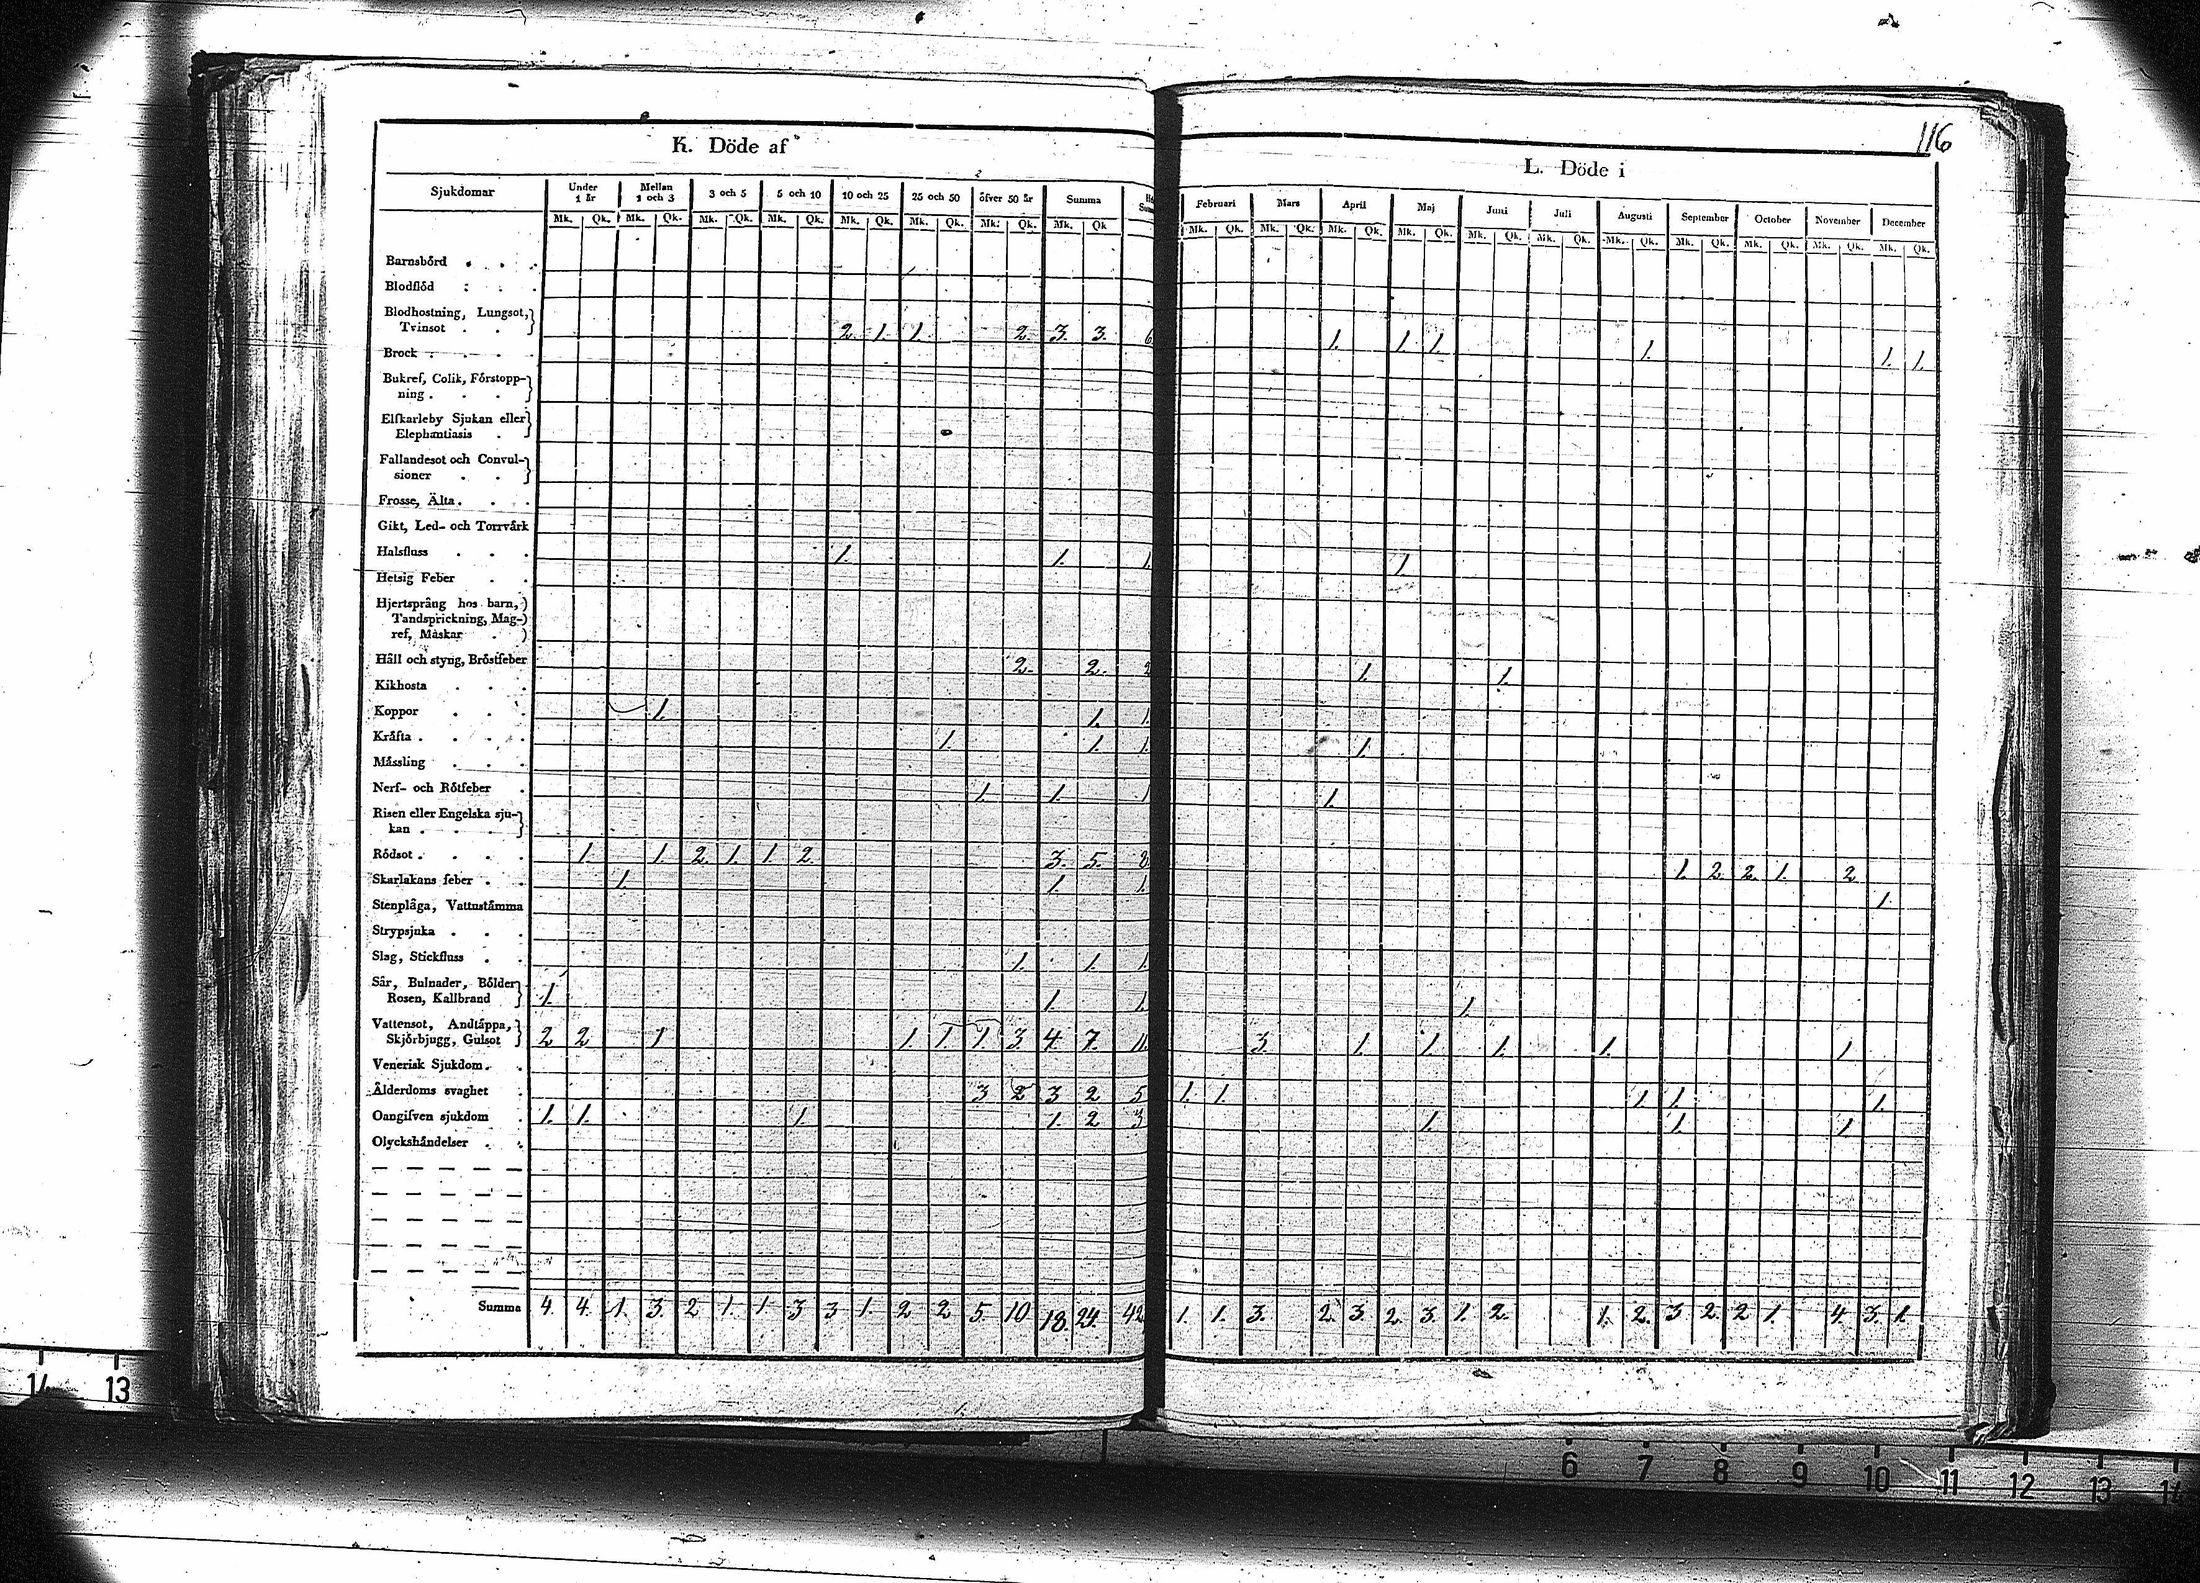 116
K. Döde af
Sjukdomar Under 1 år Mellan 1 och 3 3 och 5 5 och 10 10 och 25 25 och 50 öfver 50 år Summa
Mk. Qk. Mk. Qk. Mk. Qk. Mk. Qk. Mk. Qk. Mk. Qk. Mk. Qk. Mk. Qk
Barnsbörd . . .
Blodflöd : . .
Blodhostning, Lungsot,
Tvinsot . . 2. 1. 1. 2. 3. 3. 6
Brock . . . .
Bukref, Colik, Förstopp-
ning . . .
Elfkarleby Sjukan eller
Elephantiasis .
Fallandesot och Convul-
sioner . .
Frosse, Älta . . .
Gikt, Led- och Torrvärk
Halsfluss . . . 1. 1. 1.
Hetsig Feber . .
Hjertsprång hos barn,
Tandsprickning, Mag-
ref, Maskar .
Håll och styng, Bröstfeber 2. 2. 2
Kikhosta . . .
Koppor . . . 1. 1. 1.
Kräfta . . . . 1. 1. 1.
Mässling . . .
Nerf- och Rötfeber . 1. 1. 1
Risen eller Engelska sju-
kan . . . .
Rödsot . . . . 1. 1. 2. 1. 1. 2. 3. 5. 8
Skarlakans feber . . 1. 1. 1.
Stenplåga, Vattustämma
Strypsjuka . . .
Slag, Stickfluss . . 1. 1. 1.
Sår, Bulnader, Bölder
Rosen, Kallbrand 1. 1. 1.
Vattensot, Andtäppa,
Skjörbjugg, Gulsot 2 2 1 1. 1. 1. 3. 4. 7. 11.
Venerisk Sjukdom . .
Ålderdoms svaghet . 3 2 3 2 5
Oangifven sjukdom . 1. 1. 1. 1. 2 3
Olyckshändelser . .
Summa 4. 4. 1. 3. 2 1. 1. 3 3 1. 2 2 5. 10 18. 24. 42.
L. Döde i
Februari Mars April Maj Juni Juli Augusti September October November December
Mk. Qk. Mk. Qk. Mk. Qk. Mk. Qk. Mk. Qk. Mk. Qk. Mk. Qk. Mk. Qk. Mk. Qk. Mk. Qk. Mk. Qk.
1. 1. 1. 1. 1. 1.
1.
1. 1.
1.
1.
1. 2. 2. 1. 2
1.
1.
3. 1. 1. 1. 1. 1.
1. 1. 1. 1. 1.
1. 1. 1.
1. 1. 3. 2. 3. 2. 3. 1. 2. 1. 2. 3 2. 2 1. 4. 3. 1.